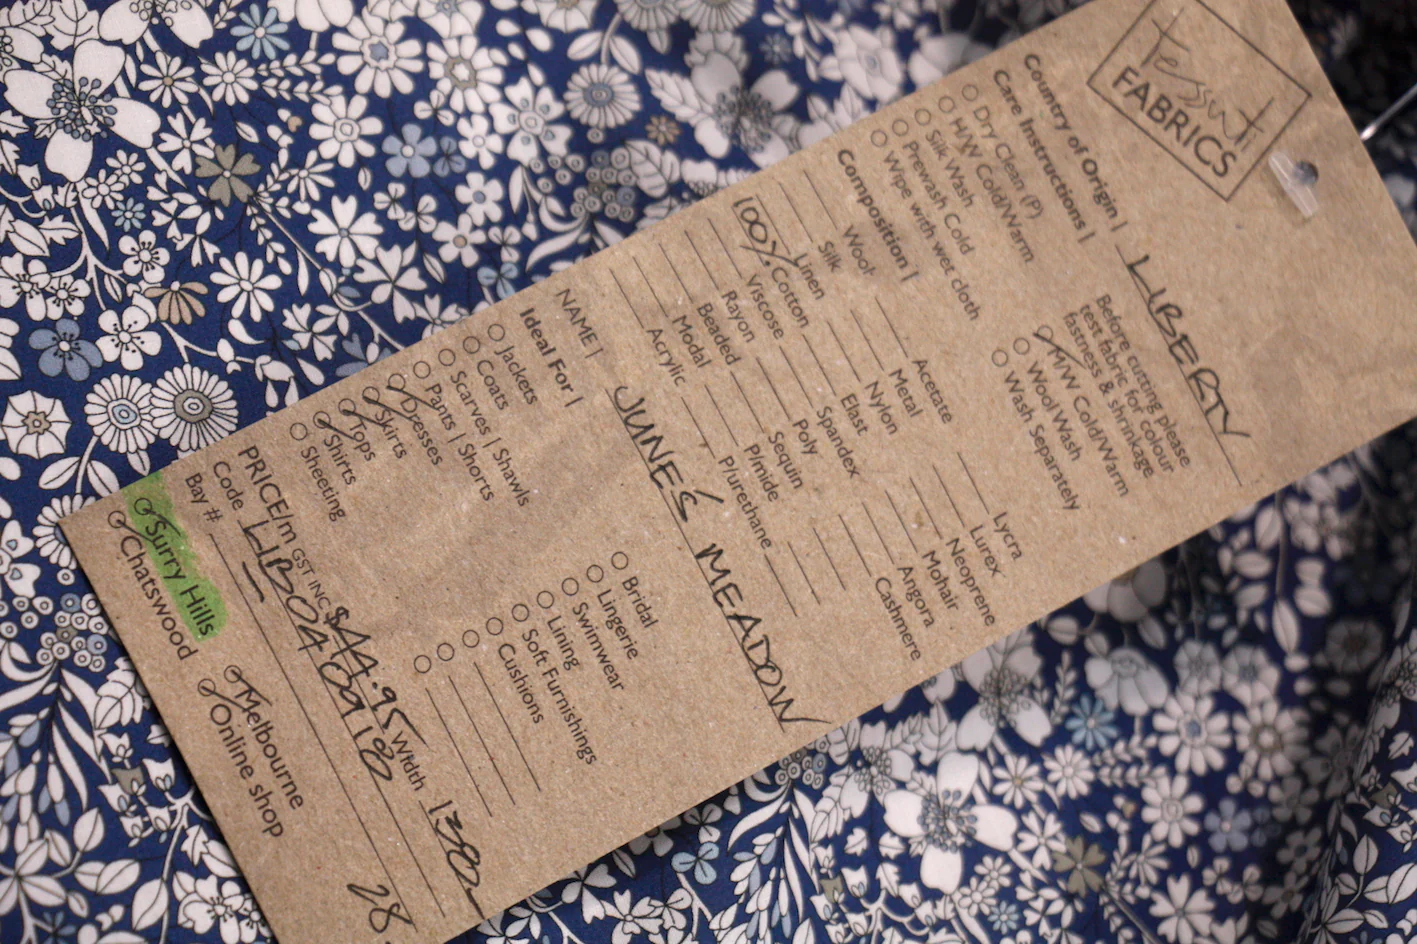 Tessuti
FABRICS
Country of Origin | LIBERTY
Care Instructions |
Dry Clean (P)
H/W Cold/Warm
Silk Wash
Prewash Cold
Wipe with wet cloth
Before cutting please
test fabric for colour
fastness & shrinkage
M/W Cold/Warm
Wool Wash
Wash Separately
Composition |
Wool
Silk
Linen
100% Cotton
Viscose
Rayon
Beaded
Modal
Acrylic
Acetate
Metal
Nylon
Elast
Spandex
Poly
Sequin
P/mide
P/urethane
Lycra
Lurex
Neoprene
Mohair
Angora
Cashmere
NAME | JUNE'S MEADOW
Ideal For |
Jackets
Coats
Scarves | Shawls
Pants | Shorts
Dresses
Skirts
Tops
Shirts
Sheeting
Bridal
Lingerie
Swimwear
Lining
Soft Furnishings
Cushions
PRICE/m GST INC $44.95 Width 138
Code LIB04091B
Bay # 28
Surry Hills
Chatswood
Melbourne
Online shop